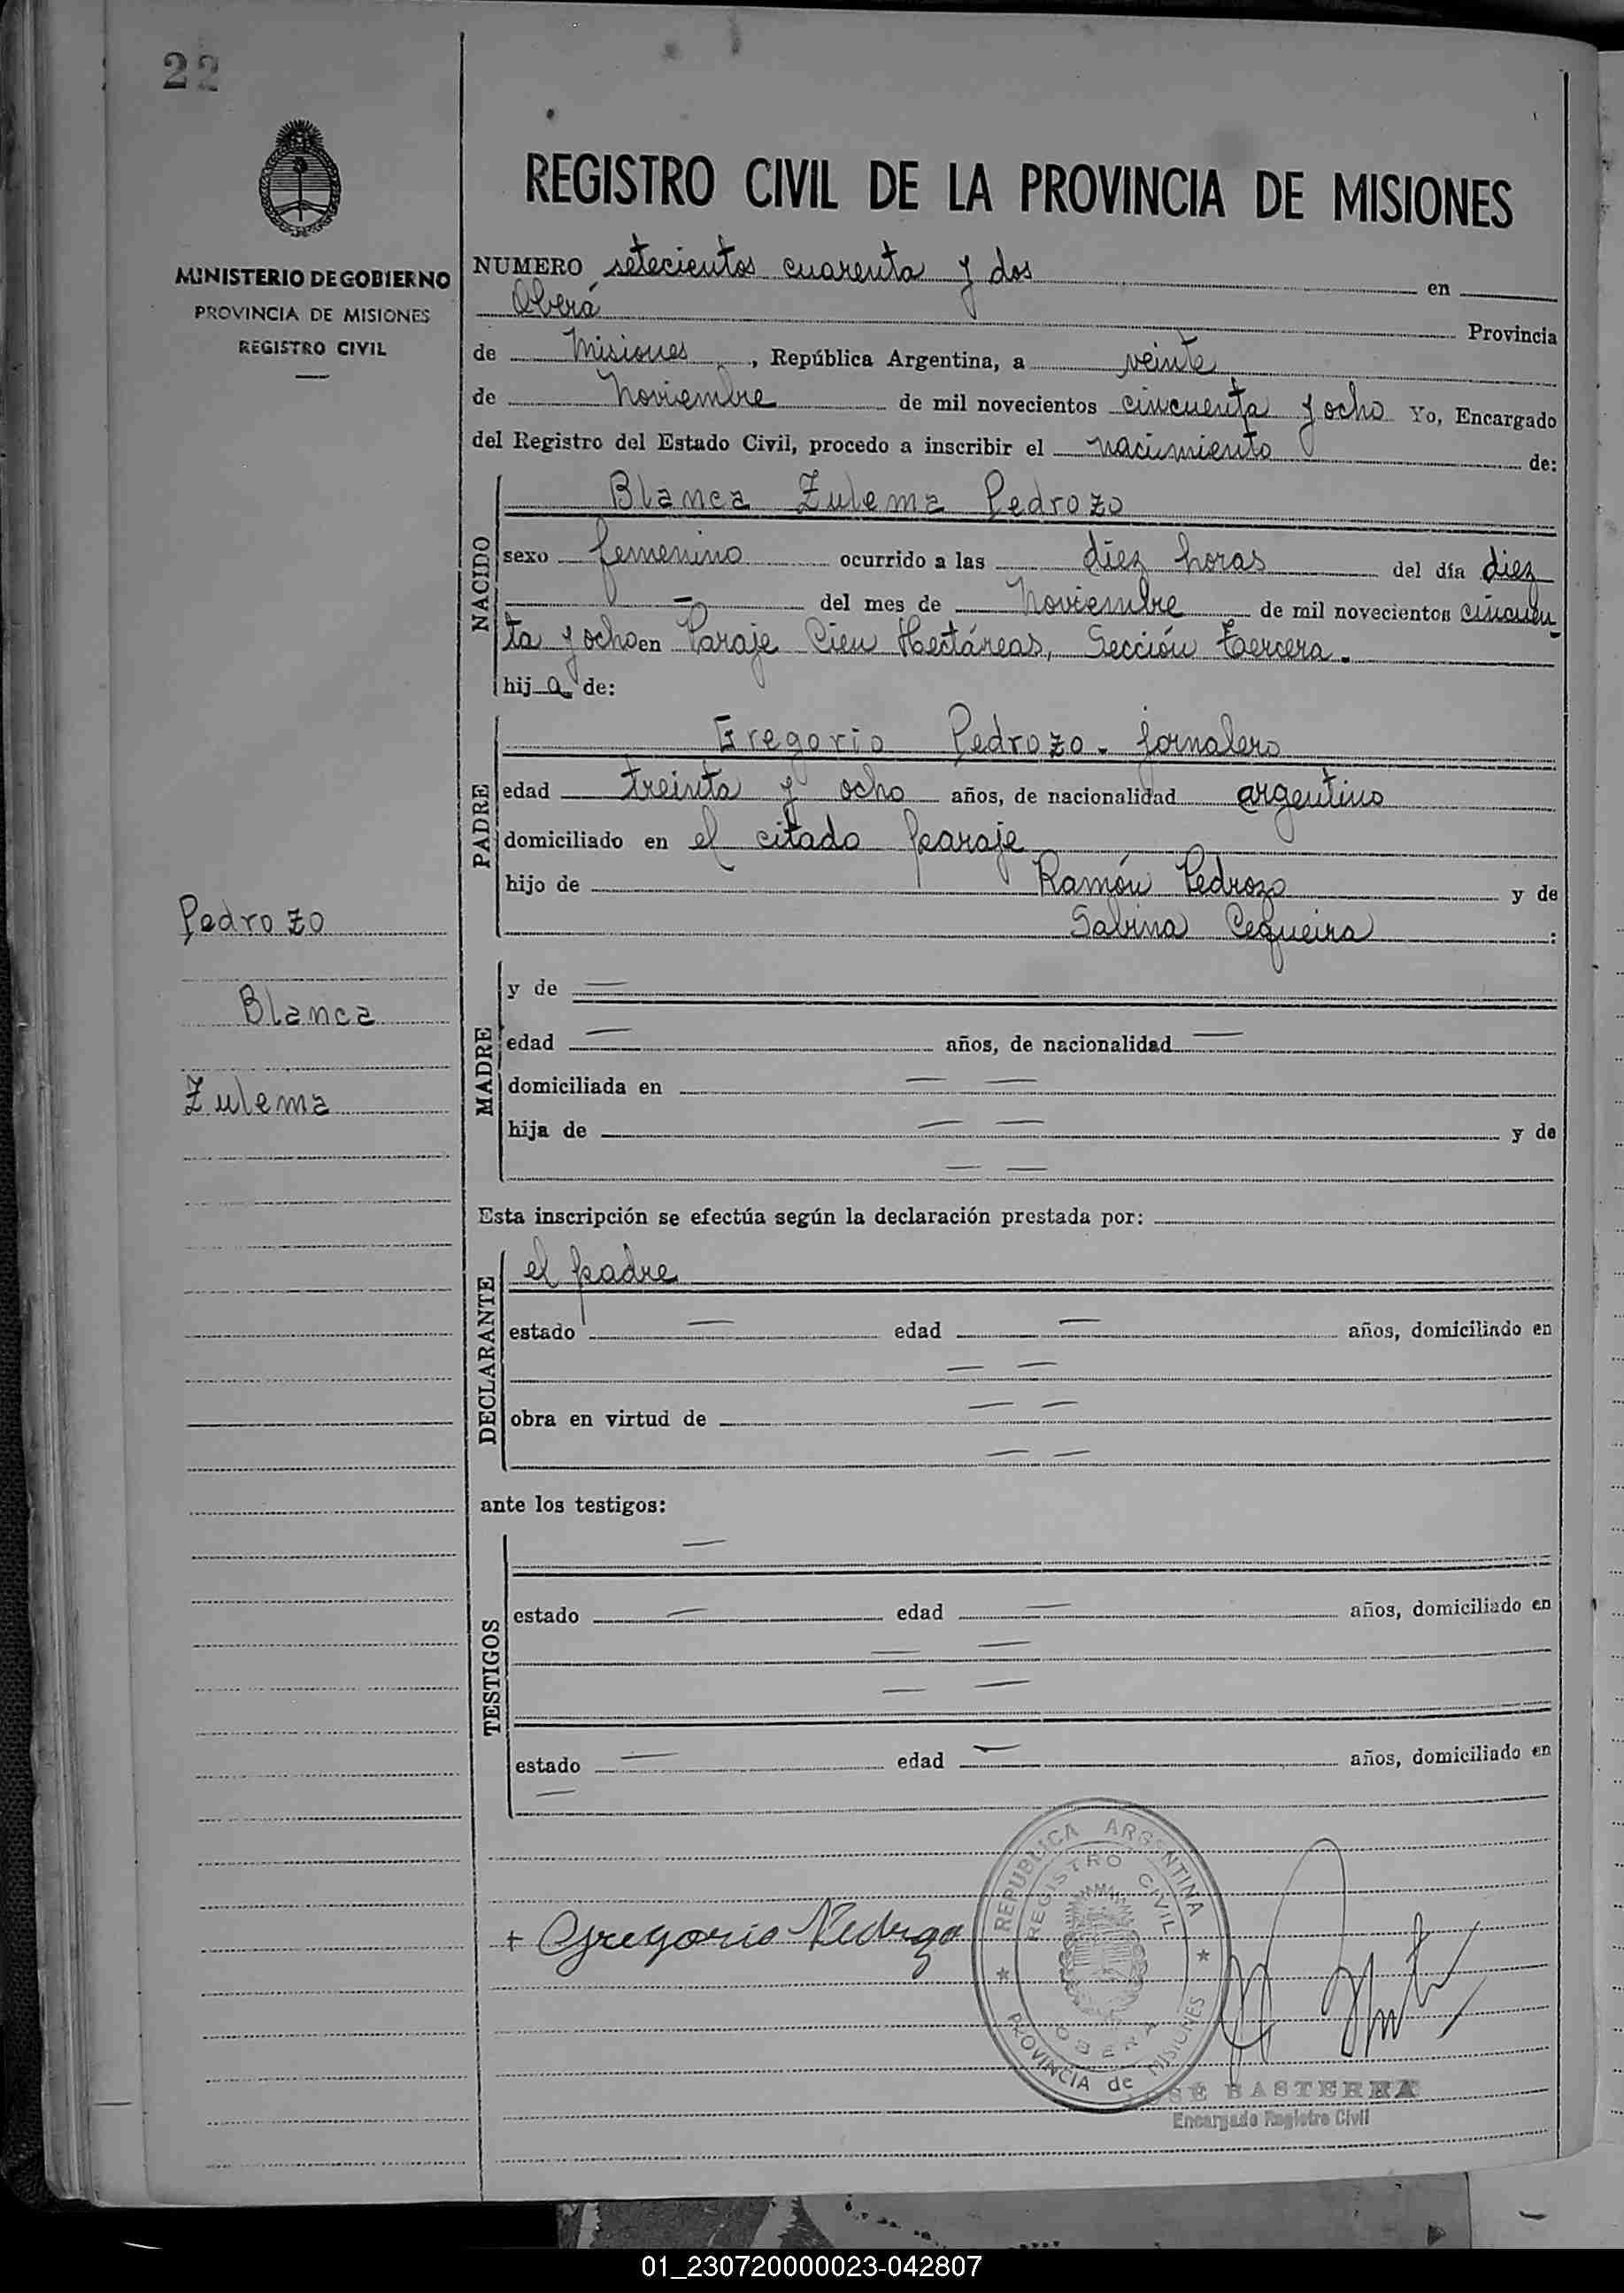 22
MINISTERIO DE GOBIERNO
PROVINCIA DE MISIONES
REGISTRO CIVIL
REGISTRO CIVIL DE LA PROVINCIA DE MISIONES
NUMERO setecientos cuarenta y dos en
Oberá Provincia
de Misiones, República Argentina, a veinte
de Noviembre de mil novecientos cincuenta y ocho Yo, Encargado
del Registro del Estado Civil, procedo a inscribir el nacimiento de:
NACIDO
Blanca Zulema Pedrozo
sexo femenino ocurrido a las diez horas del día diez
— del mes de Noviembre de mil novecientos cincuen
ta y ocho en Paraje Cien Hectáreas, Sección tercera.
hija de:
PADRE
Gregorio Pedrozo - jornalero
edad treinta y ocho años, de nacionalidad argentino
domiciliado en el citado paraje
hijo de Ramón Pedrozo y de
Sabina Cequeira :
Pedrozo
Blanca
Zulema
MADRE
y de —
edad — años, de nacionalidad —
domiciliada en — —
hija de — — y de
— —
Esta inscripción se efectúa según la declaración prestada por:
DECLARANTE
el padre
estado — edad — años, domiciliado en
— —
obra en virtud de — —
— —
ante los testigos:
TESTIGOS
—
estado — edad — años, domiciliado en
— —
— —
estado — edad — años, domiciliado en
—
+ Gregorio Pedrozo
REPUBLICA ARGENTINA
REGISTRO CIVIL
OBERA
PROVINCIA de MISIONES
JOSÉ BASTERRA
Encargado Registro Civil
01_230720000023-042807